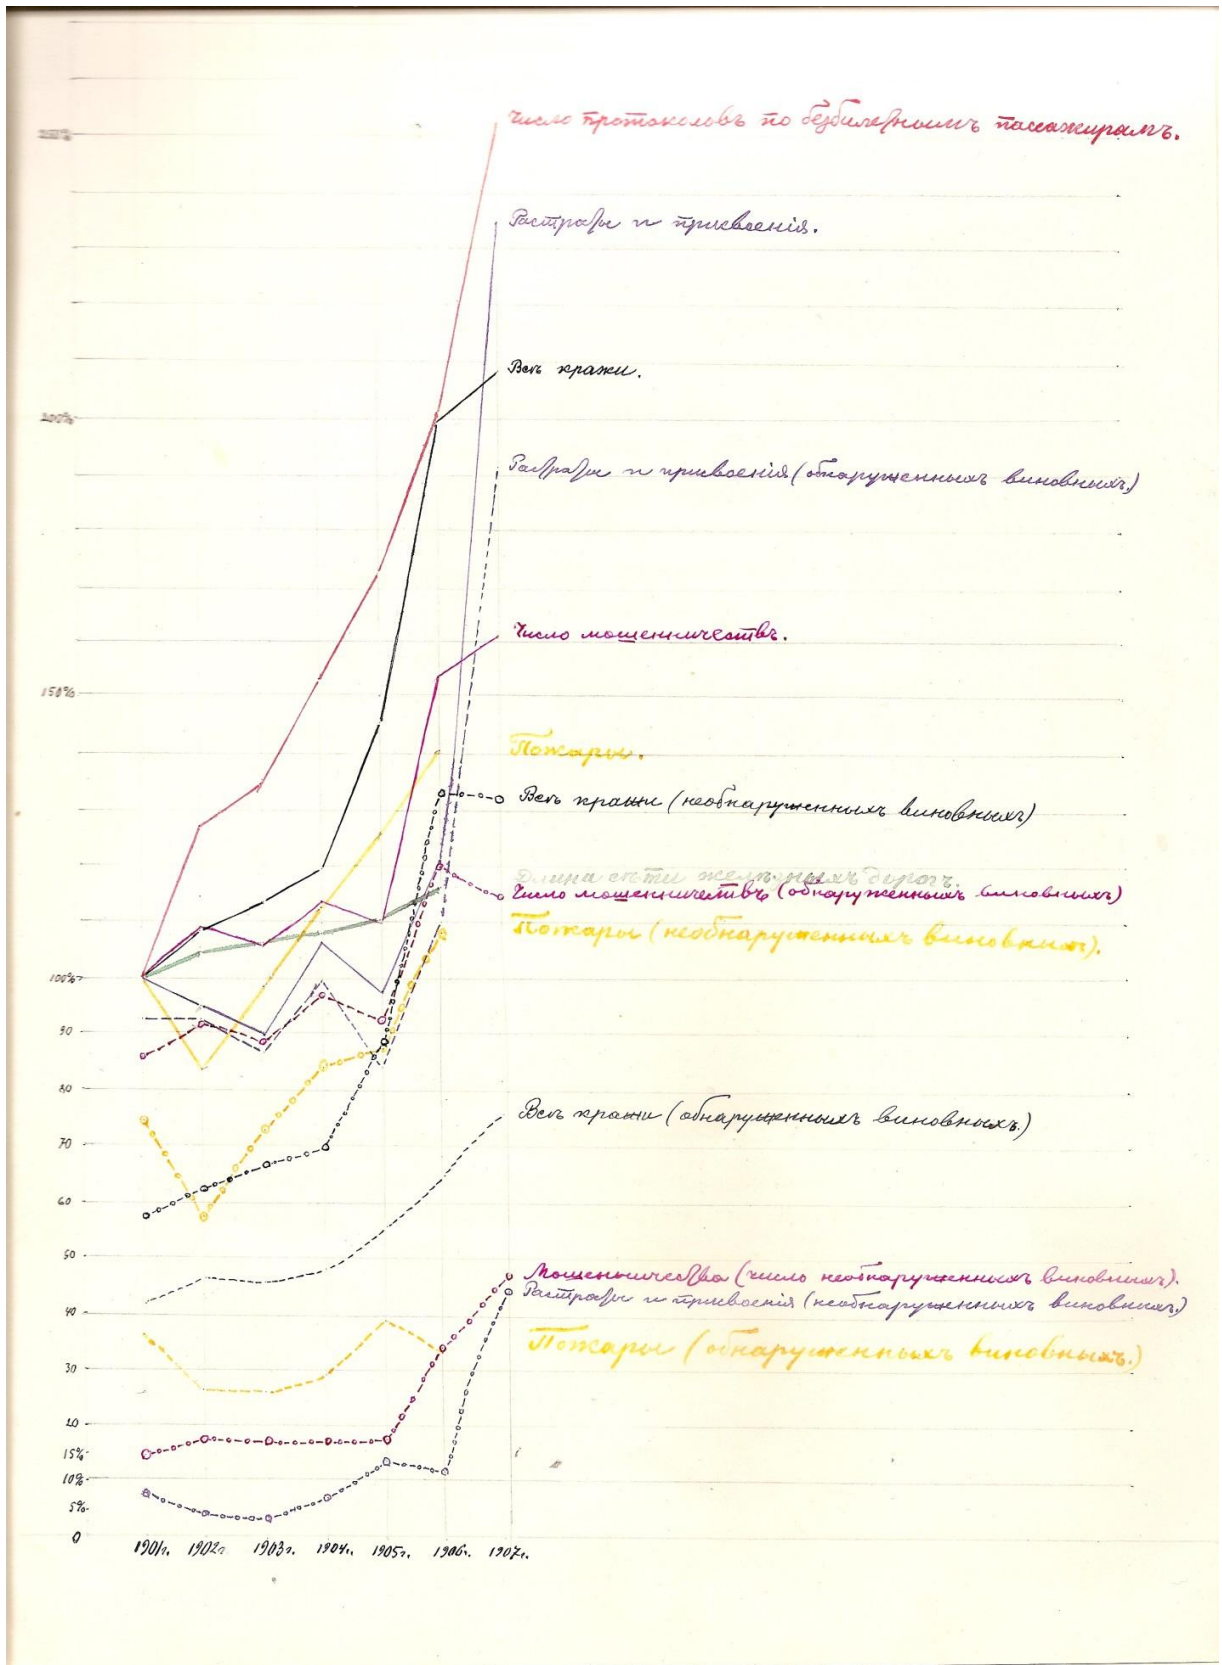 Число протоколовъ по безбилетнымъ пассажирамъ.
250%
Растраты и присвоенія.
Всѣ кражи.
200%
Растраты и присвоенія (обнаруженныхъ виновныхъ.)
Число мошенничествъ.
150%
Пожары.
Всѣ кражи (необнаруженныхъ виновныхъ)
Длина сѣти желѣзныхъ дорогъ.
Число мошенничествъ (обнаруженныхъ виновныхъ)
Пожары (необнаруженныхъ виновныхъ).
100%
90
80
Всѣ кражи (обнаруженныхъ виновныхъ.)
70
60
50
Мошенничества (число необнаруженныхъ виновныхъ).
Растраты и присвоенія (необнаруженныхъ виновныхъ.)
40
Пожары (обнаруженныхъ виновныхъ.)
30
20
15%
10%
5%
0
1901г. 1902г. 1903г. 1904г. 1905г. 1906г. 1907г.